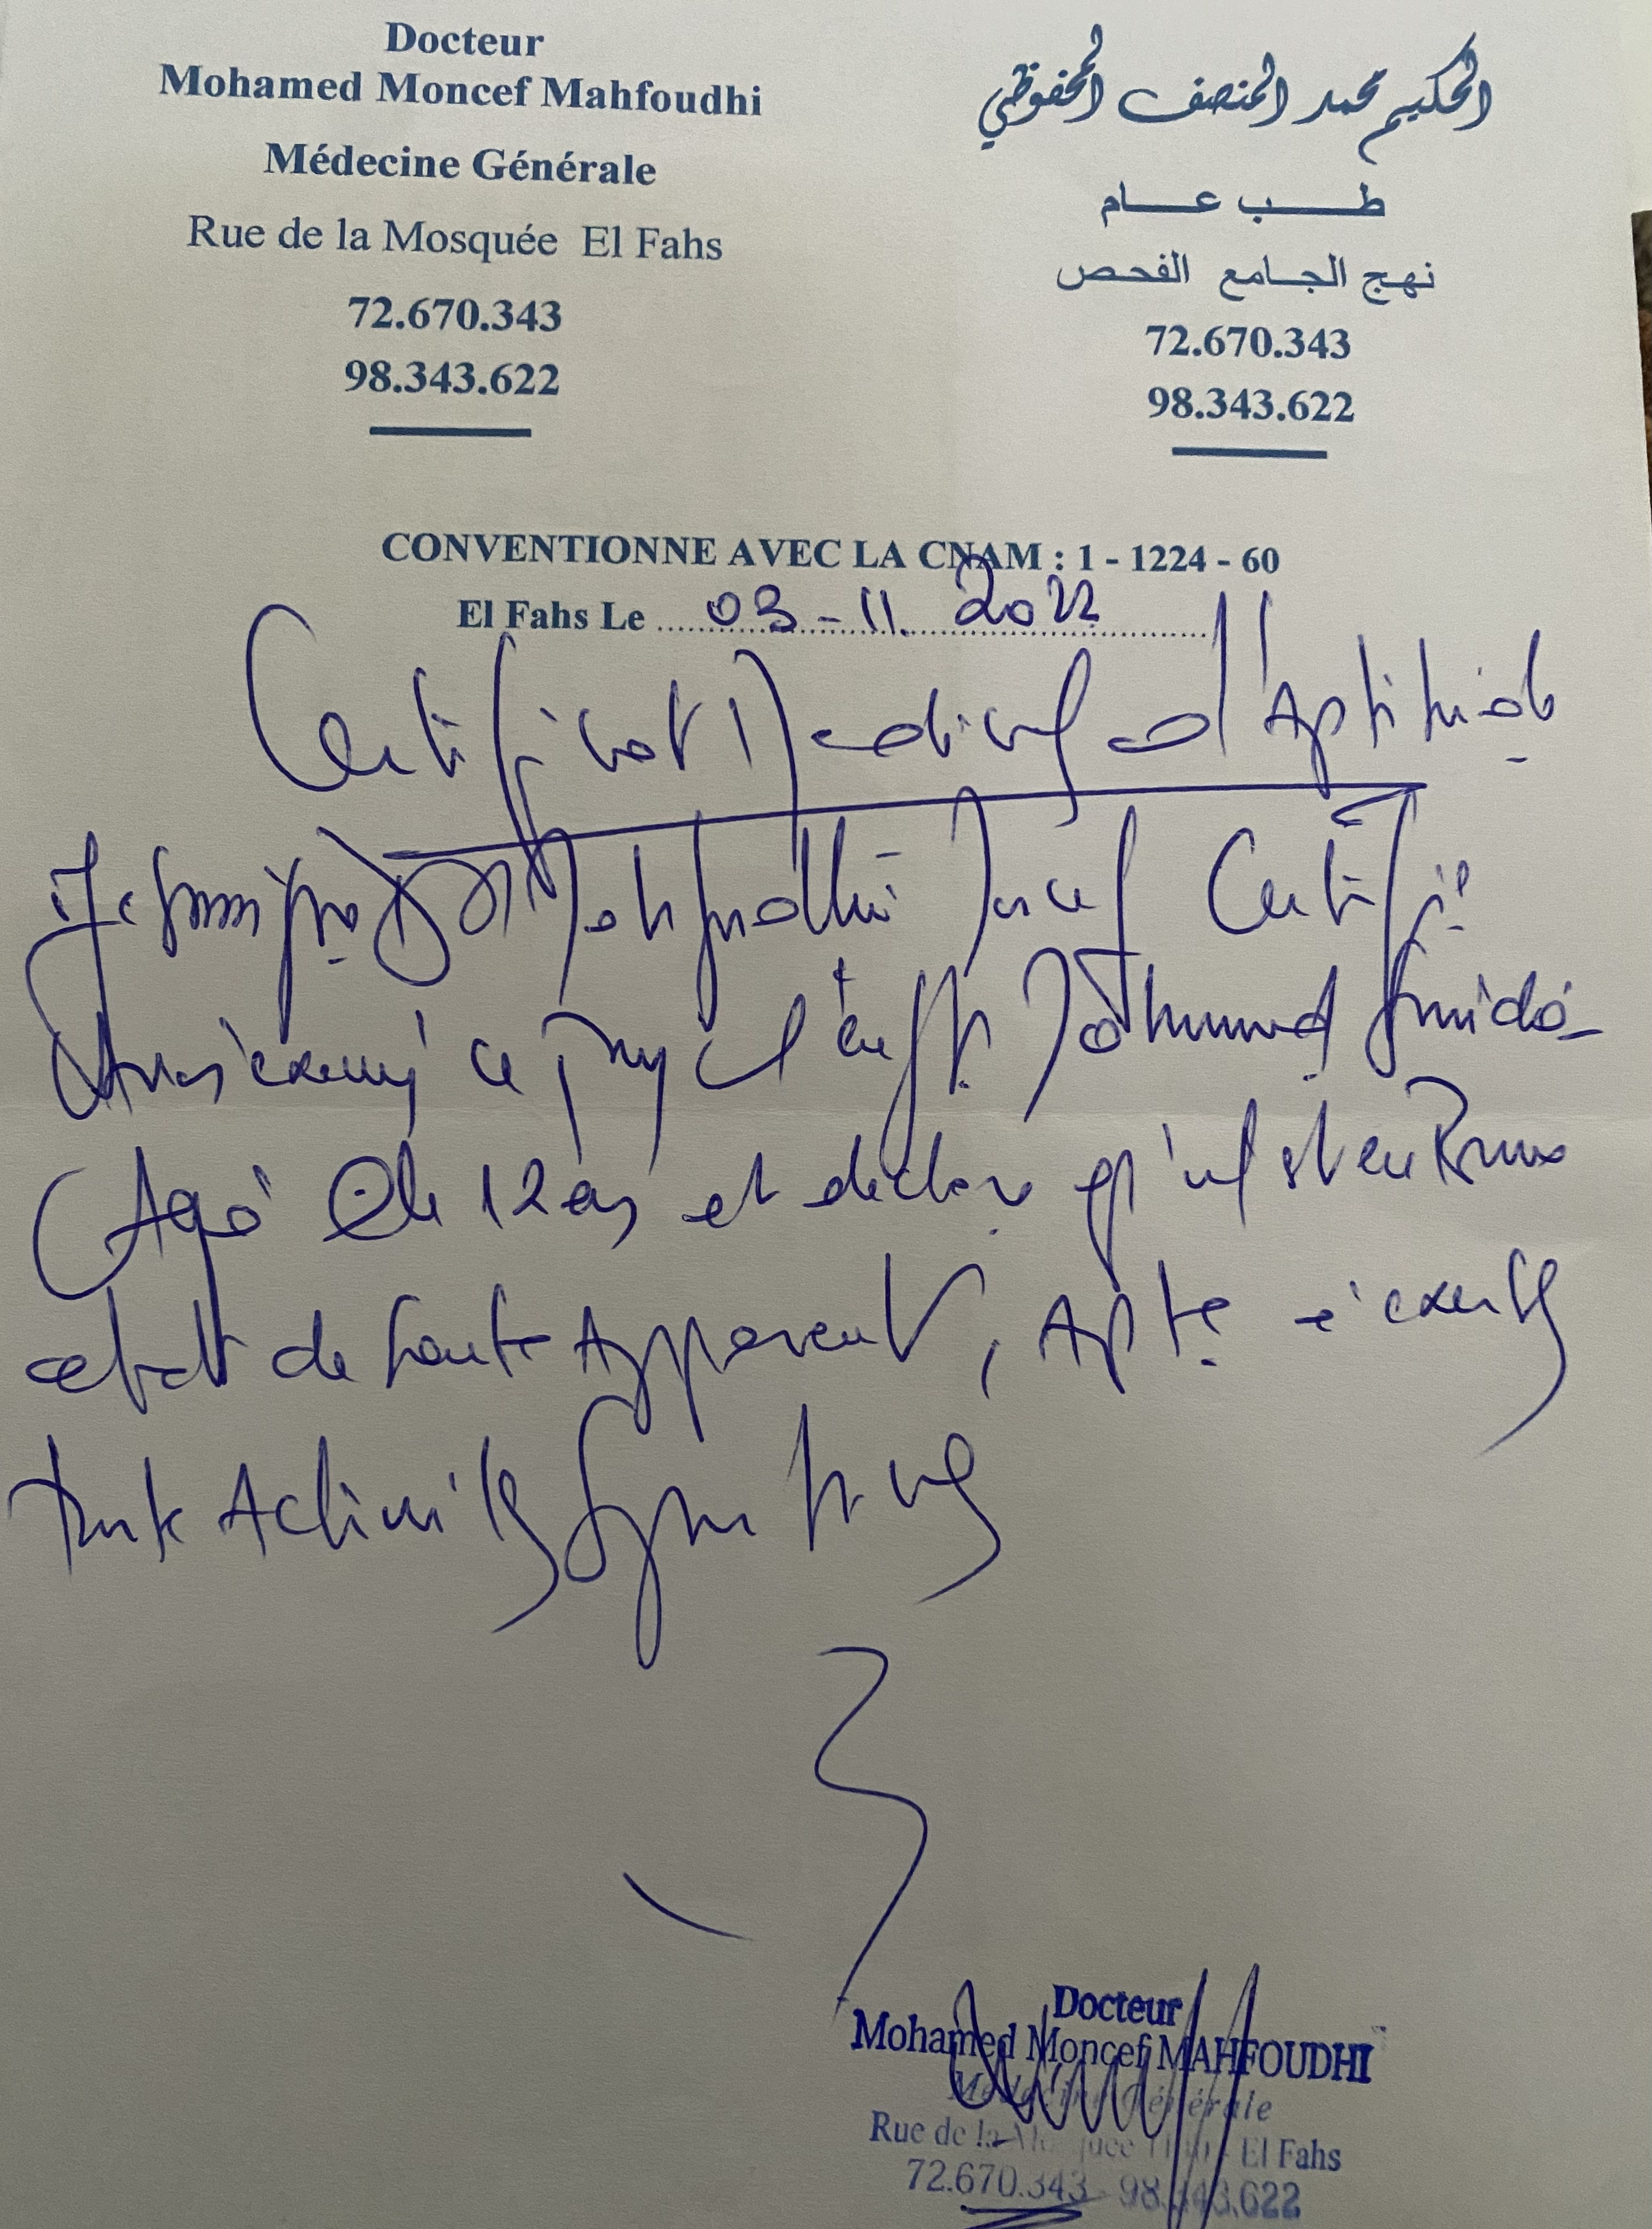 Docteur
Mohamed Moncef Mahfoudhi
Médecine Générale
Rue de la Mosquée El Fahs
72.670.343
98.343.622
الحكيم محمد المنصف المحفوظي
طب عام
نهج الجامع الفحص
72.670.343
98.343.622
CONVENTIONNE AVEC LA CNAM : 1 - 1224 - 60
El Fahs Le 03-11. 2022
Certificat Medical d'Aptitude
Je soussigné Dr Mahfoudhi Moncef Certifie
Avoir examiné ce jour l'enft Mohammed
Agé de 12 ans et declare qu'il est en Bonne
etat de Santé Apparent, Apte à exercer
toute Activité Sportive
Docteur
Mohamed Moncef MAHFOUDHI
Médecine Générale
Rue de la Mosquée El Fahs
72.670.343 - 98.343.622